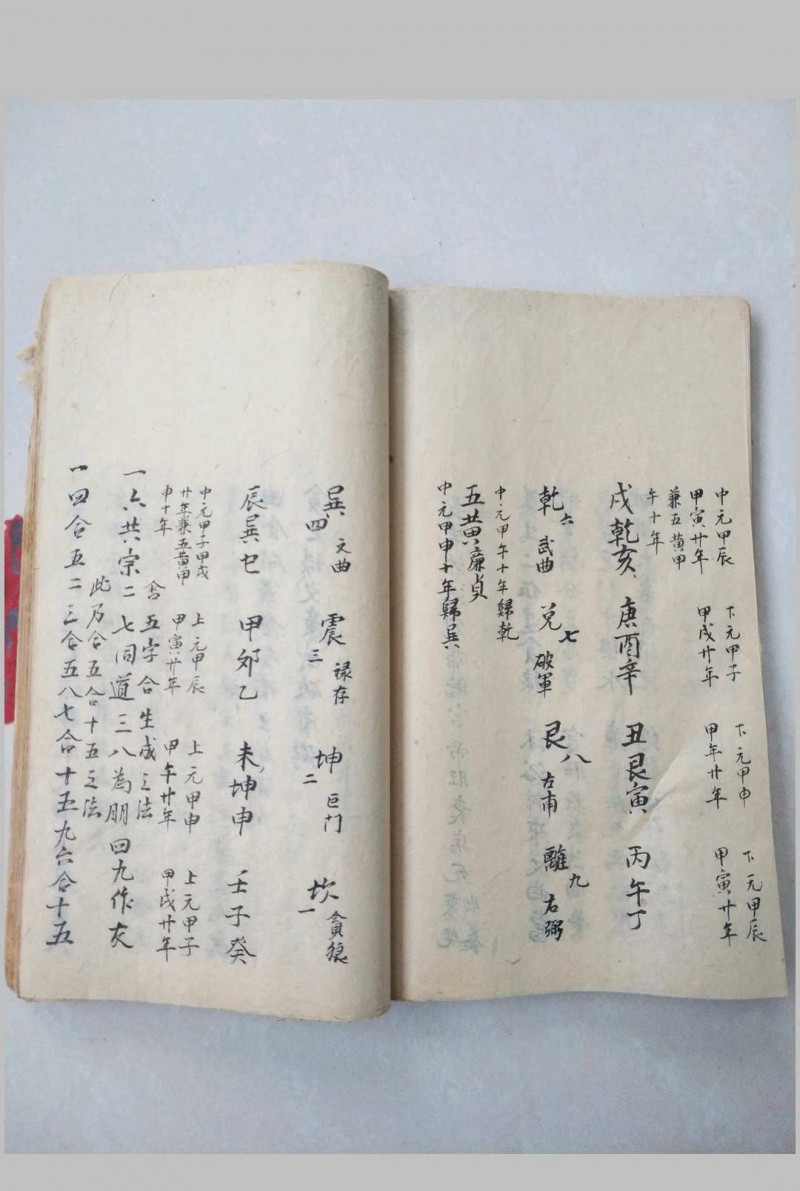 中元甲辰 下元甲子 下元甲申 下元甲辰
甲寅廿年 甲戌廿年 甲午廿年 甲寅廿年
兼五黄甲
午十年
戌乾亥 庚酉辛 丑艮寅 丙午丁
乾六武曲 兌七破軍 艮八左甫 離九右弼
中元甲午十年歸乾
五黄廉貞
中元甲申十年歸巽
巽四文曲 震三禄存 坤二巨门 坎一貪狼
辰巽巳 甲夘乙 未坤申 壬子癸
中元甲子甲戌 上元甲辰 上元甲申 上元甲子
廿年兼五黄甲 甲寅廿年 甲午廿年 甲戌廿年
申十年
舍五字合生成之法
一六共宗二七同道三八為朋四九作友
此乃合五合十五之法
一四合五二三合五八七合十五九六合十五